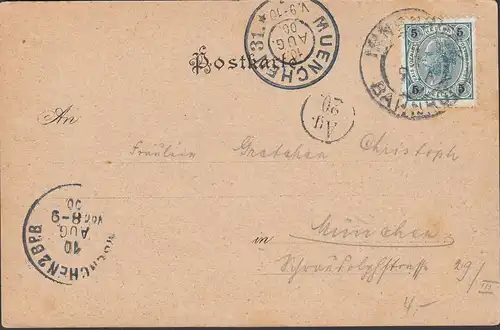 MUENCHEN 31.
10
AUG
00
V.9-10
5 5
5 5
BAHNHOF
Postkarte
Ag.
20
An
Fräulein Gretchen Christoph
in München
Schraudolphstrasse 29/III
4.-
MUENCHEN 2 B.P.B
10
AUG
00
8-9